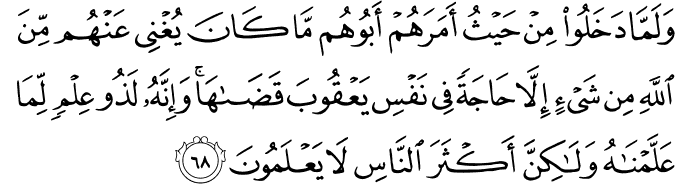 وَلَمَّا دَخَلُوا۟ مِنْ حَيْثُ أَمَرَهُمْ أَبُوهُم مَّا كَانَ يُغْنِى عَنْهُم مِّنَ
ٱللَّهِ مِن شَىْءٍ إِلَّا حَاجَةً فِى نَفْسِ يَعْقُوبَ قَضَىٰهَا ۚ وَإِنَّهُۥ لَذُو عِلْمٍ لِّمَا
عَلَّمْنَٰهُ وَلَٰكِنَّ أَكْثَرَ ٱلنَّاسِ لَا يَعْلَمُونَ ٦٨